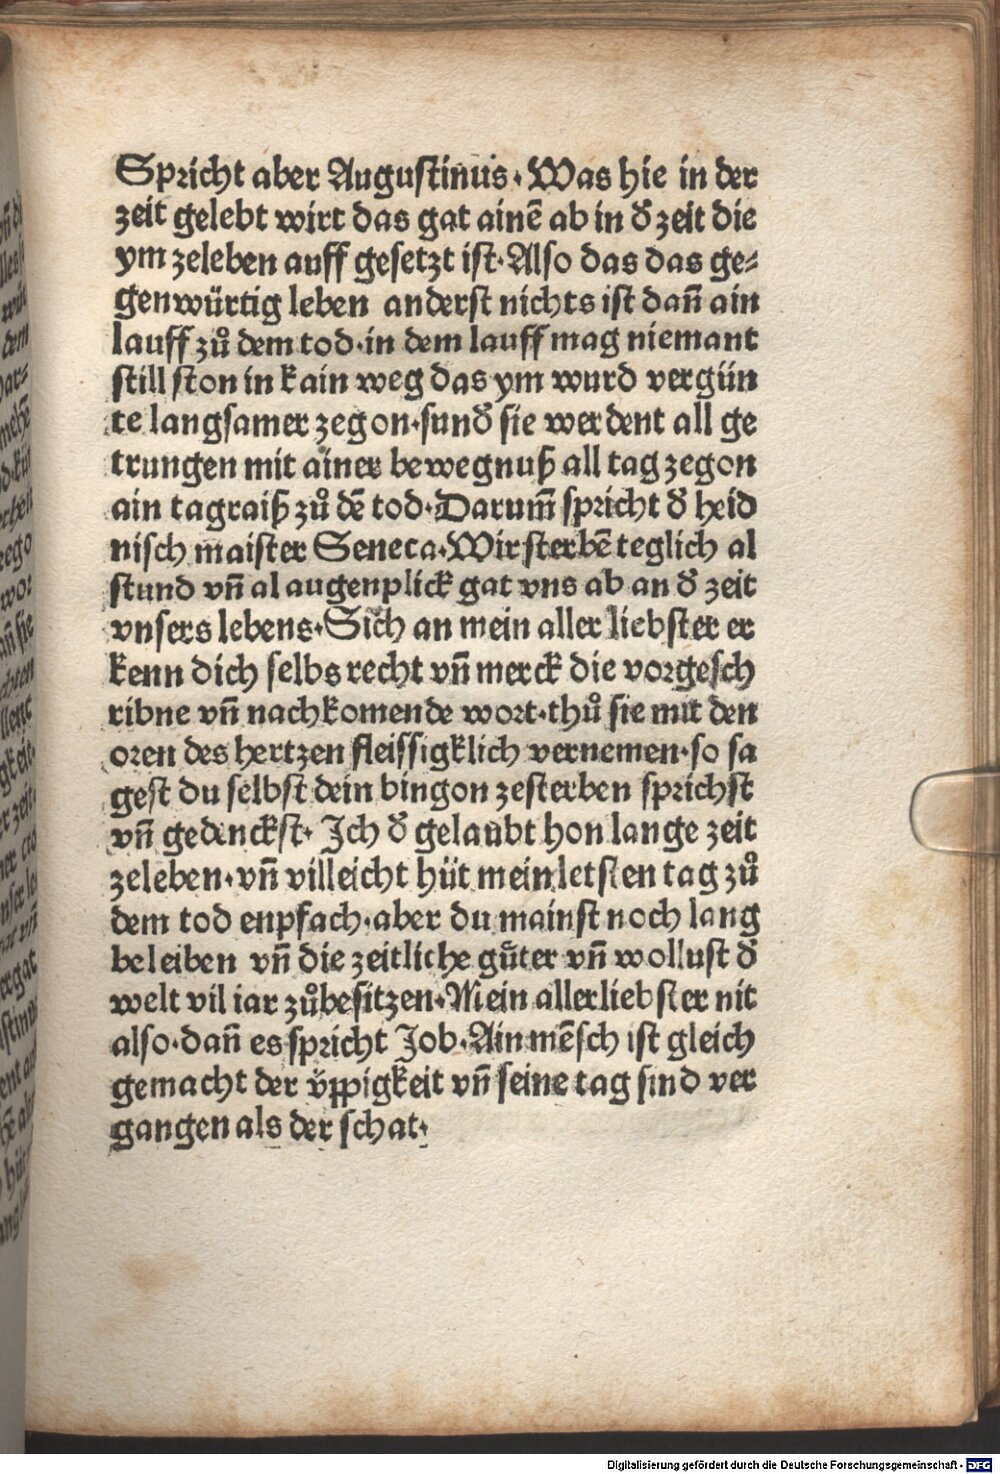 Spricht aber Augustinus. Was hie in der
zeit gelebt wirt das gat ainē ab in d̄ zeit die
ym zeleben auff gesetzt ist. Also das das ge⸗
genwürtig leben anderst nichts ist dan̄ ain
lauff zů dem tod. in dem lauff mag niemant
still ston in kain weg das ym wurd vergün
te langsamer zegon. sund̄ sie werdent all ge
trungen mit ainer bewegnuß all tag zegon
ain tagraiß zů dē tod. Darum̄ spricht d̄ heid
nisch maister Seneca. Wir sterbē teglich al
stund vn̄ al augenplick gat vns ab an d̄ zeit
vnsers lebens. Sich an mein aller liebster er
kenn dich selbs recht vn̄ merck die vorgesch
ribne vn̄ nachkomende wort. thů sie mit den
oren des hertzen fleissigklich vernemen. so sa
gest du selbst dein hingon zesterben sprichst
vn̄ gedenckst. Ich d̄ gelaubt hon lange zeit
zeleben. vn̄ villeicht hüt mein letsten tag zů
dem tod enpfach. aber du mainst noch lang
beleiben vn̄ die zeitliche gůter vn̄ wollust d̄
welt vil iar zůbesitzen. Mein allerliebster nit
also. dan̄ es spricht Job. Ain mēsch ist gleich
gemacht der v̈ppigkeit vn̄ seine tag sind ver
gangen als der schat.
Digitalisierung gefördert durch die Deutsche Forschungsgemeinschaft - DFG